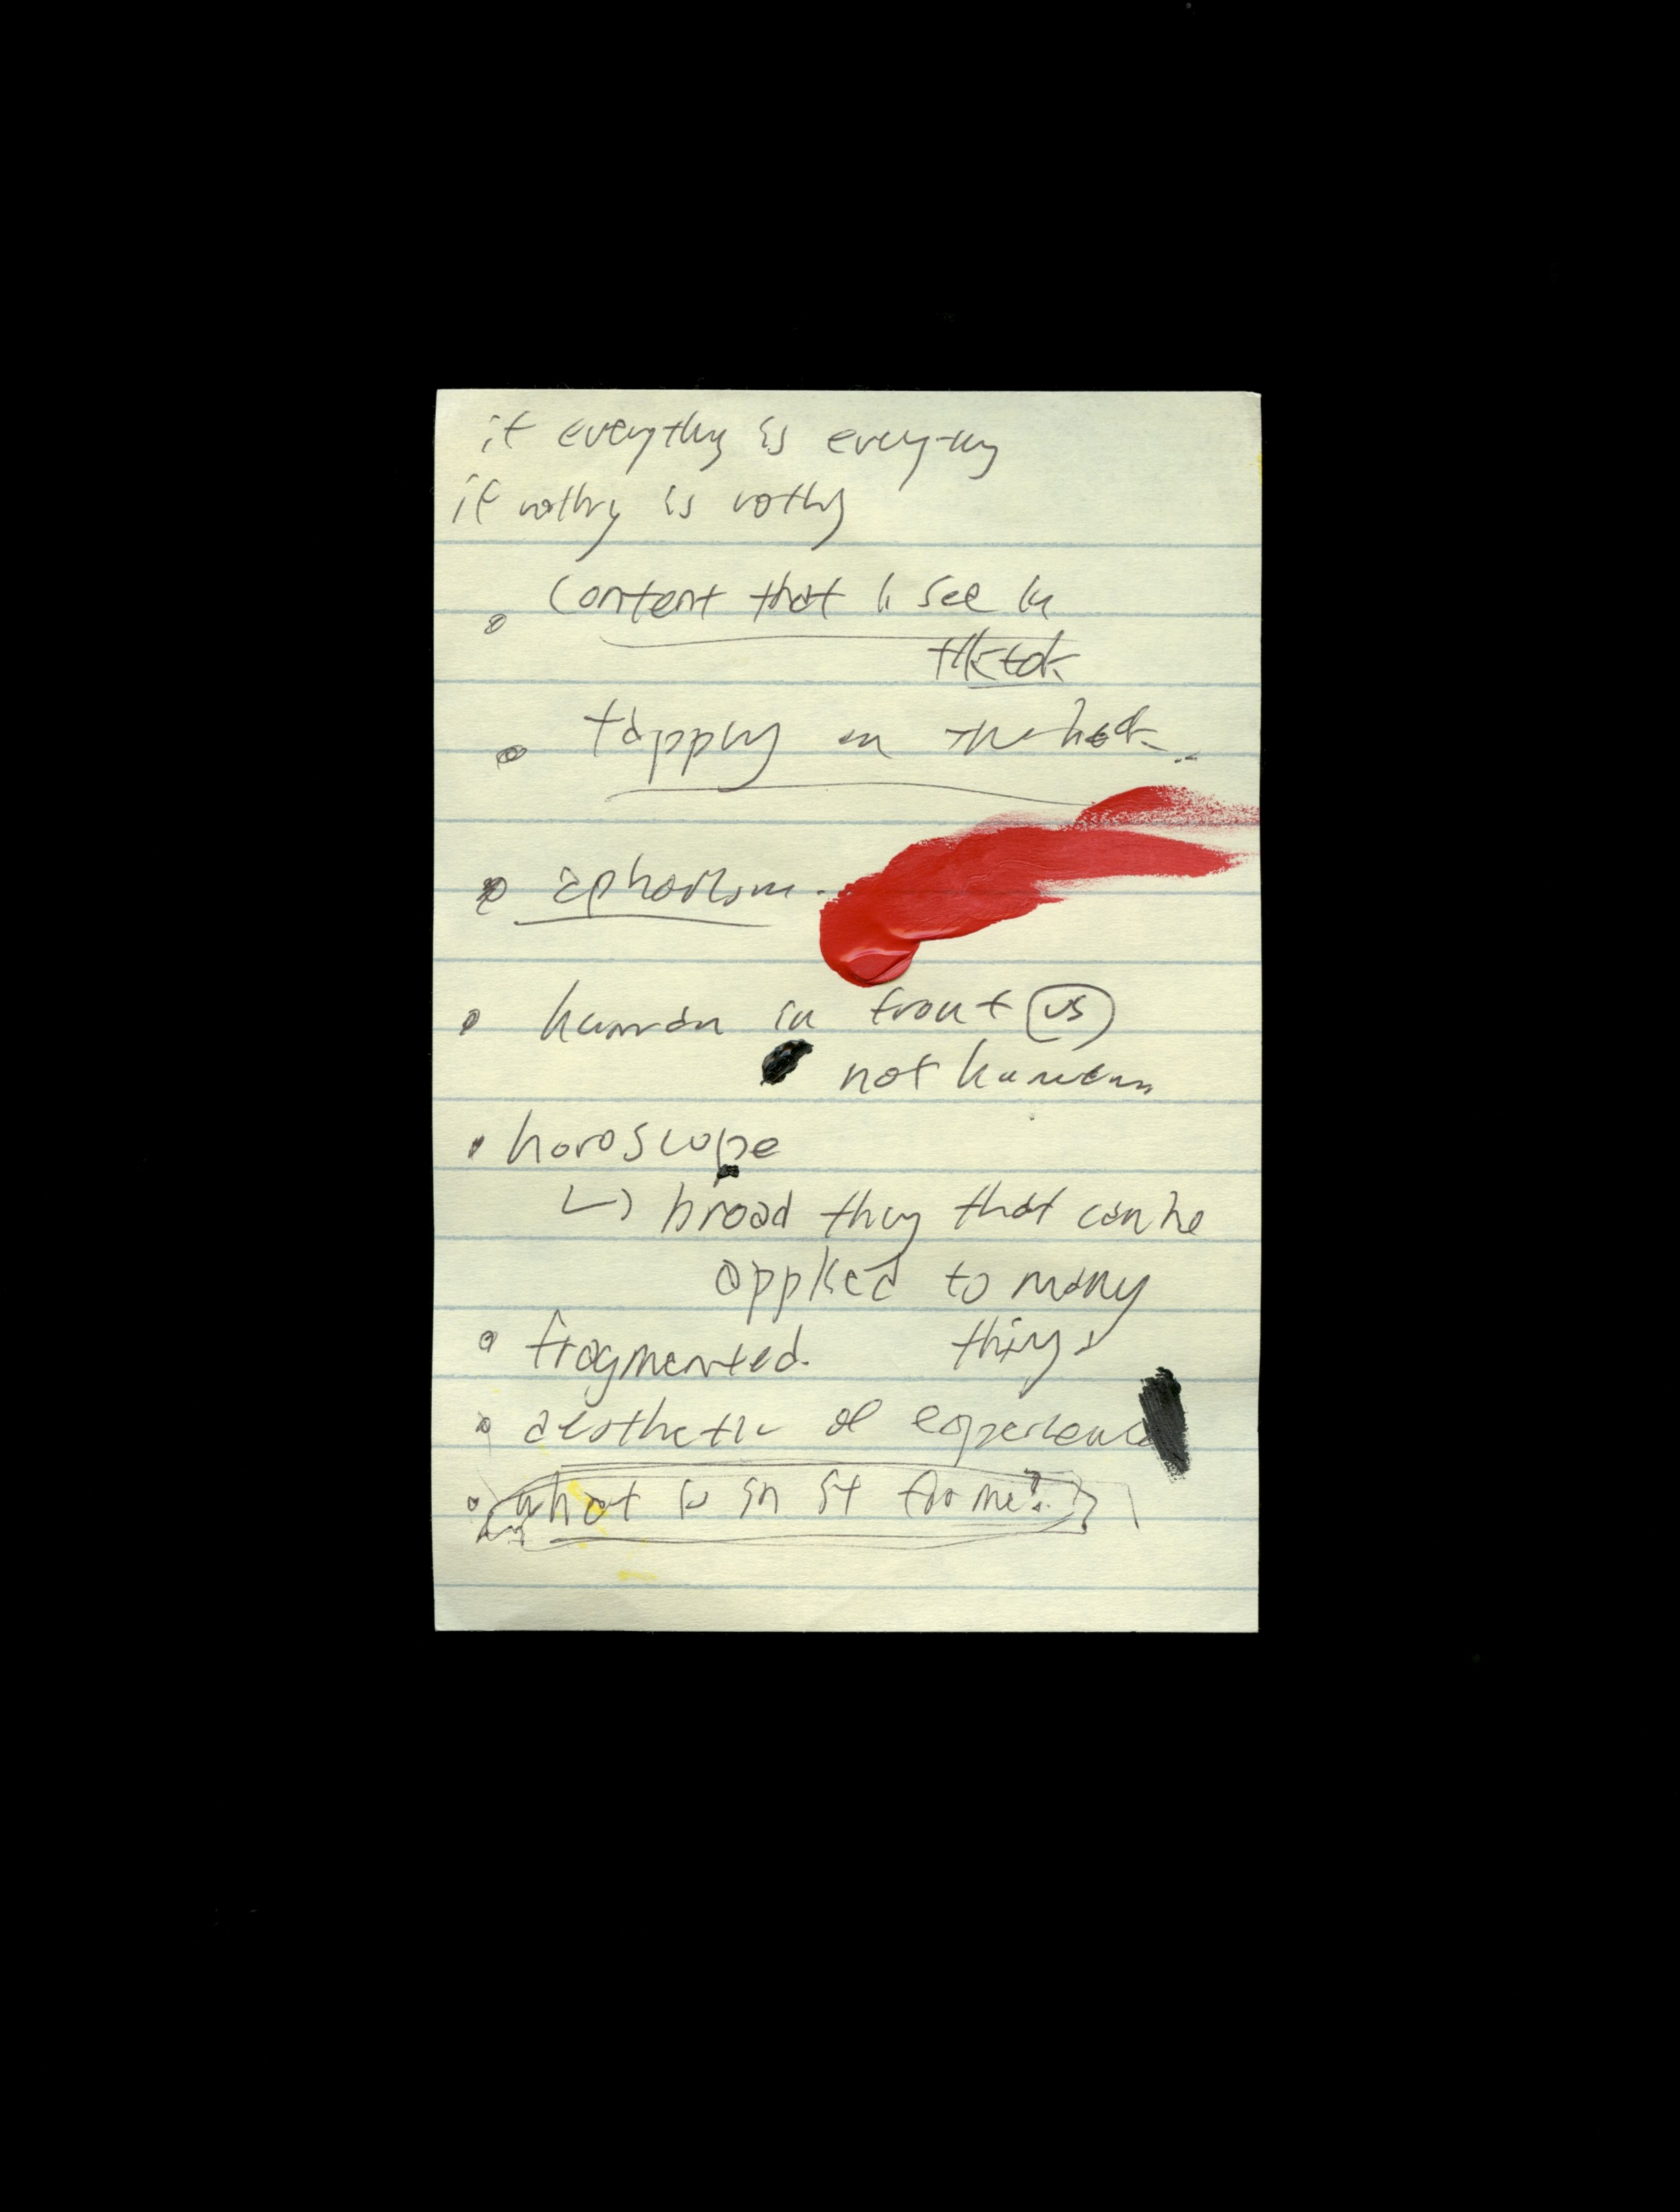 if everything is everything
if nothing is nothing
content that I see in
tiktok
tapping on the
aphorism.
human in front vs
not human
horoscope
↳ broad thing that can be
applied to many
things
fragmented.
aesthetic of experience
what is in it for me?